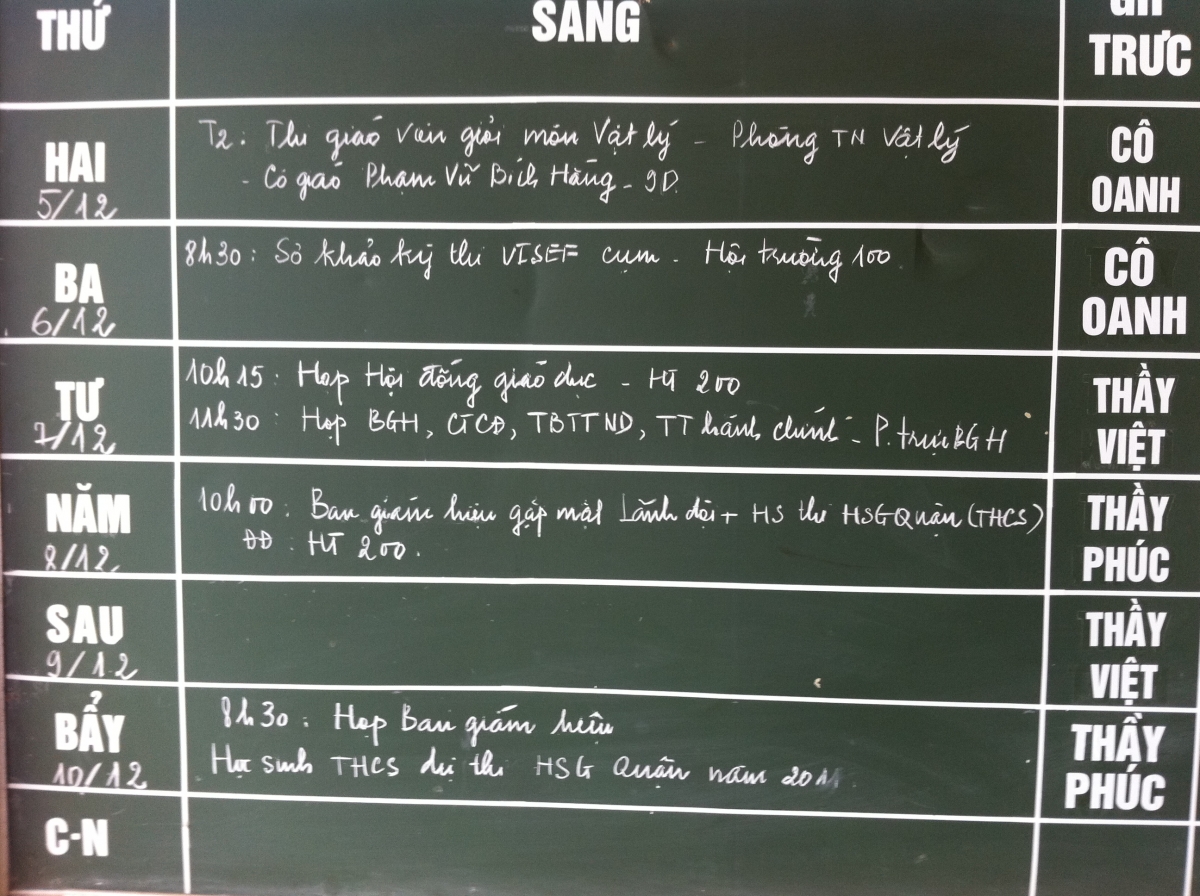 THỨ SÁNG GH
TRƯC
HAI
5/12
T2: Thi giáo viên giỏi môn Vật lý - Phòng TN Vật lý
- Cô giáo Phạm Vũ Bích Hằng - 9D.
CÔ
OANH
BA
6/12
8h30: Sơ khảo kỳ thi VISEF cụm - Hội trường 100
CÔ
OANH
TƯ
7/12
10h15: Họp Hội đồng giáo dục - HT 200
11h30: Họp BGH, CTCĐ, TBTTND, TT hành chính - P. trực BGH
THẦY
VIỆT
NĂM
8/12
10h00: Ban giám hiệu gặp mặt Lãnh đội + HS thi HSG Quận (THCS)
ĐĐ: HT 200.
THẦY
PHÚC
SAU
9/12
THẦY
VIỆT
BẨY
10/12
8h30: Họp Ban giám hiệu
Học sinh THCS dự thi HSG Quận năm 2011
THẦY
PHÚC
C-N